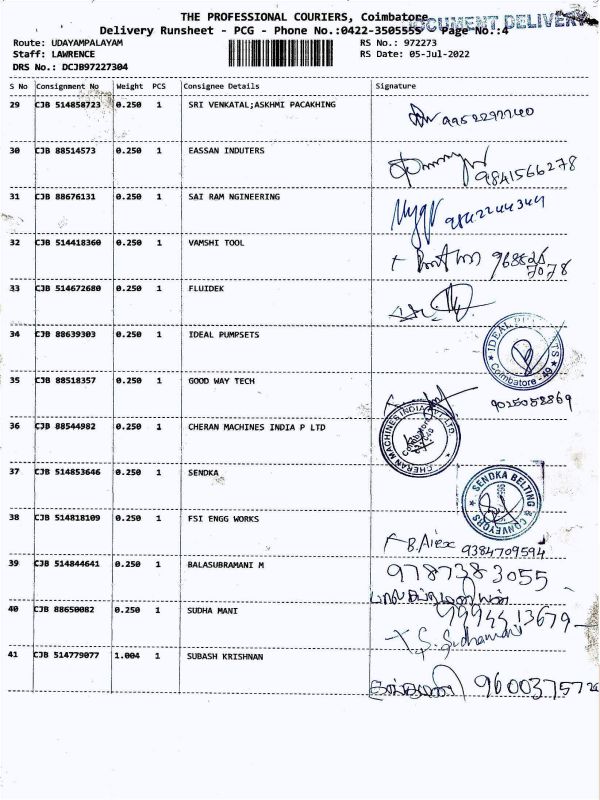 THE PROFESSIONAL COURIERS, Coimbatore
DOCUMENT DELIVERY
Delivery Runsheet - PCG - Phone No.:0422-3505555 Page No.:4
Route: UDAYAMPALAYAM RS No.: 972273
Staff: LAWRENCE RS Date: 05-Jul-2022
DRS No.: DCJB97227304
S No Consignment No Weight PCS Consignee Details Signature
29 CJB 514858723 0.250 1 SRI VENKATAL;ASKHMI PACAKHING
30 CJB 88514573 0.250 1 EASSAN INDUTERS
9841566278
31 CJB 88676131 0.250 1 SAI RAM NGINEERING
9842244344
32 CJB 514418360 0.250 1 VAMSHI TOOL
33 CJB 514672680 0.250 1 FLUIDEK
34 CJB 88639303 0.250 1 IDEAL PUMPSETS
IDEAL
Coimbatore - 49
35 CJB 88518357 0.250 1 GOOD WAY TECH
9025058869
36 CJB 88544982 0.250 1 CHERAN MACHINES INDIA P LTD
CHERAN MACHINES INDIA PVT LTD
Coimbatore
37 CJB 514853646 0.250 1 SENDKA
SENDKA BELTING & CONVEYORS
38 CJB 514818109 0.250 1 FSI ENGG WORKS
B. Alex 9384709594
39 CJB 514844641 0.250 1 BALASUBRAMANI M
9787383055
40 CJB 88650082 0.250 1 SUDHA MANI
41 CJB 514779077 1.004 1 SUBASH KRISHNAN